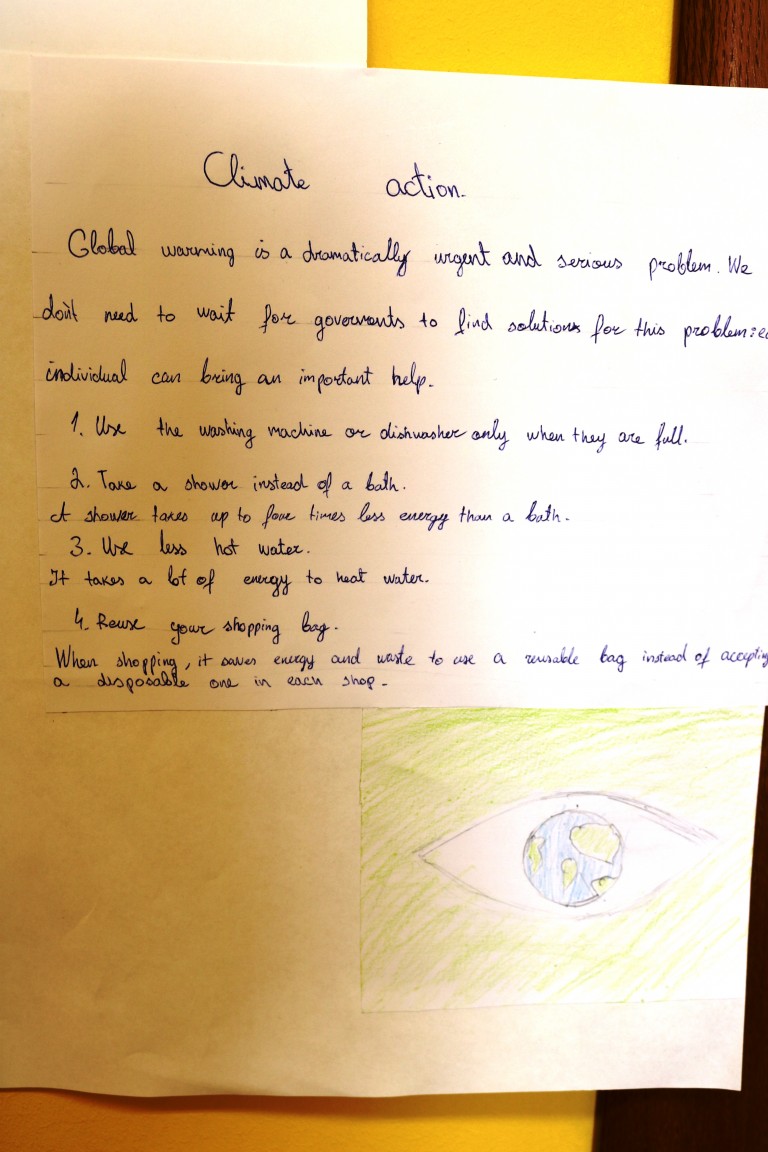 Climate action.
Global warming is a dramatically urgent and serious problem. We
don't need to wait for goverments to find solutions for this problem:
individual can bring an important help.
1. Use the washing machine or dishwasher only when they are full.
2. Take a shower instead of a bath.
A shower takes up to four times less energy than a bath.
3. Use less hot water.
It takes a lot of energy to heat water.
4. Reuse your shopping bag.
When shopping, it saves energy and waste to use a reusable bag instead of
a disposable one in each shop.